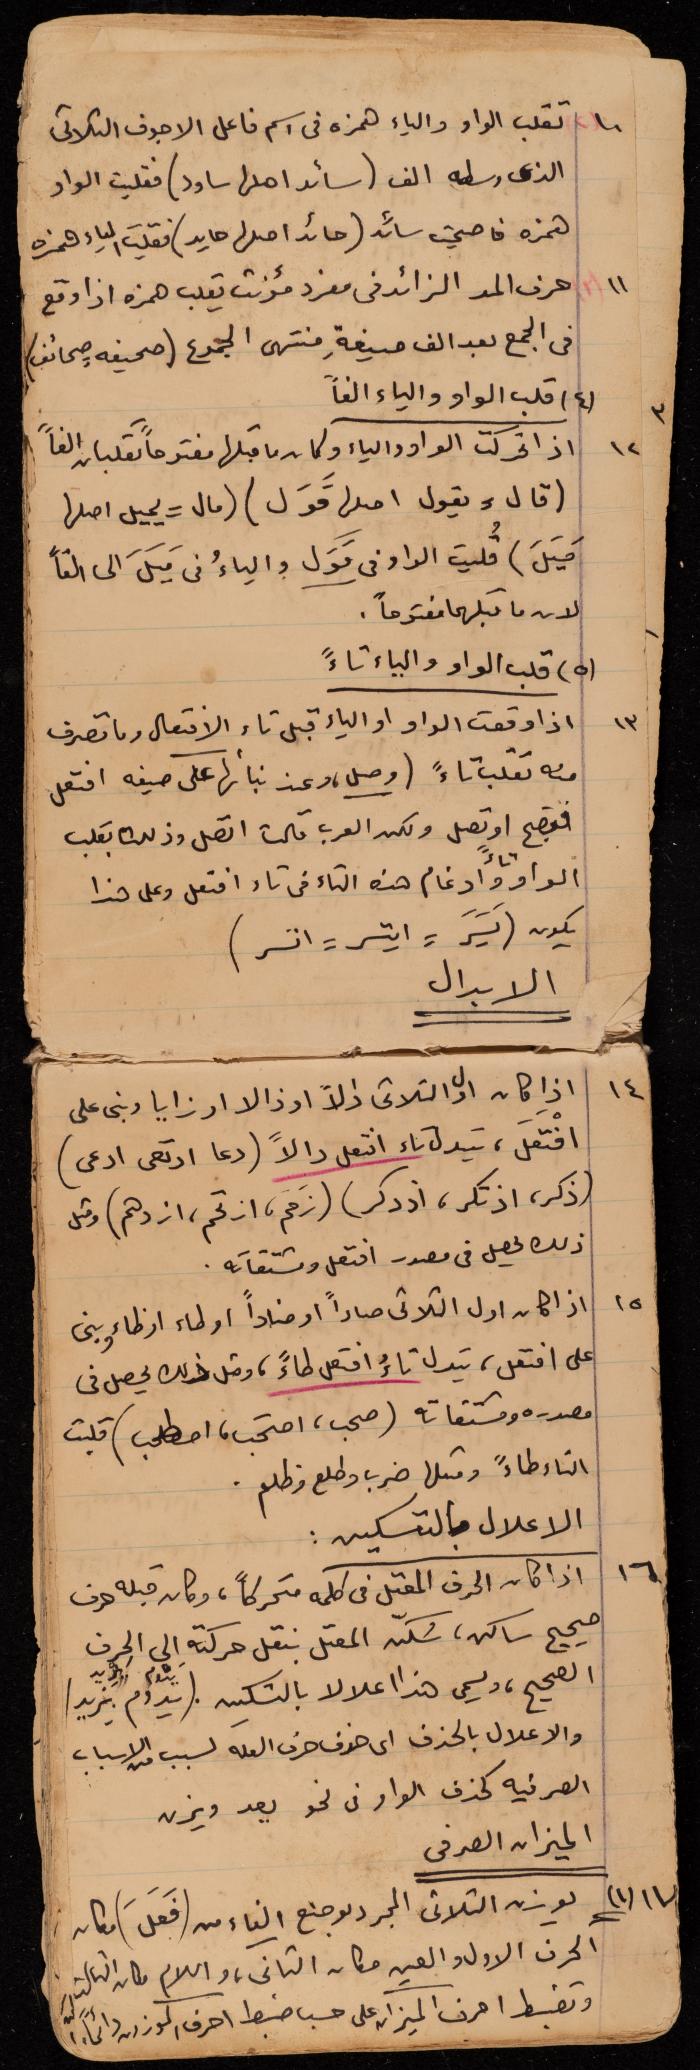 ١٠ (٢) تقلب الواو والياء همزه فى اسم فاعل الاجوف الثلاثى
الذى وسطه الف (سائد اصلها ساود) فقلبت الواو
همزه فاصبحت سائد (حائد اصلها حايد) فقلبت الياء همزه
١١ (٣) حرف المد الزائد فى مفرد مؤنث يقلب همزه اذا وقع
فى الجمع بعد الف صيغة منتهى الجموع (صحيفه صحائف)
(٤) قلب الواو والياء الفاً
١٢ اذا تحركت الواو والياء وكان ما قبلها مفتوحاً تقلبان الفاً
(قال = يقول اصلها قَوَل) (مال = يميل اصلها
مَيَلَ) قُلبت الواو فى قَوَل والياءُ فى مَيَلَ الى الفاً
لان ما قبلهما مفتوحاً .
(٥) قلب الواو والياء تاءً
١٣ اذا وقعت الواو او الياء قبل تاء الافتعال وما تصرف
منه تقلب تاءً (وصل، وعند بنائها على صيغه افتعل
فتصبح اوتصل ولكن العرب قالت اتصل وذلك بقلب
الواو تاءً وادغام هذه التاء فى تاء افتعل وعلى هذا
يكون (يَسَرَ = ايتسر = اتسر)
الابدال
١٤ اذا كان اول الثلاثى دالاً او ذالا او زايا وبنى على
افْتَعَلَ، تبدل تاء افتعل دالاً (دعا ادتعى ادعى)
(ذكر، اذتكر، اذدكر) (زَحَمَ، ازتحم، ازدحم) ومثل
ذلك يحصل فى مصدر افتعل ومشتقاته .
١٥ اذا كان اول الثلاثى صاداً او ضاداً او طاء او ظاء وبنى
على افتعل، تبدل تاءُ افتعل طاءً، ومثل ذلك يحصل فى
مصدره ومشتقاته (صحب، اصتحب، اصطحب) قلبت
التاء طاءً ومثلها ضرب وطلع وظلم .
الاعلال بالتسكين :
١٦ اذا كان الحرف المعتل فى كلمه متحركاً، وكان قبله حرف
صحيح ساكن، سُكّن المعتل بنقل حركته الى الحرف
الصحيح، ويسمى هذا اعلالا بالتسكين . (يَدْوُم يَزْيِد)
والاعلال بالحذف اى حذف حرف العله لسبب من الاسباب
الصرفيه كحذف الواو فى نحو يعد ويزن
الميزان الصرفى
١٧ (١) يوزن الثلاثى المجرد بوضع الفاء من (فَعَلَ) مكان
الحرف الاول والعين مكان الثانى، واللام مكان الثالث
وتضبط احرف الميزان على حسب ضبط احرف الموزون دائماً